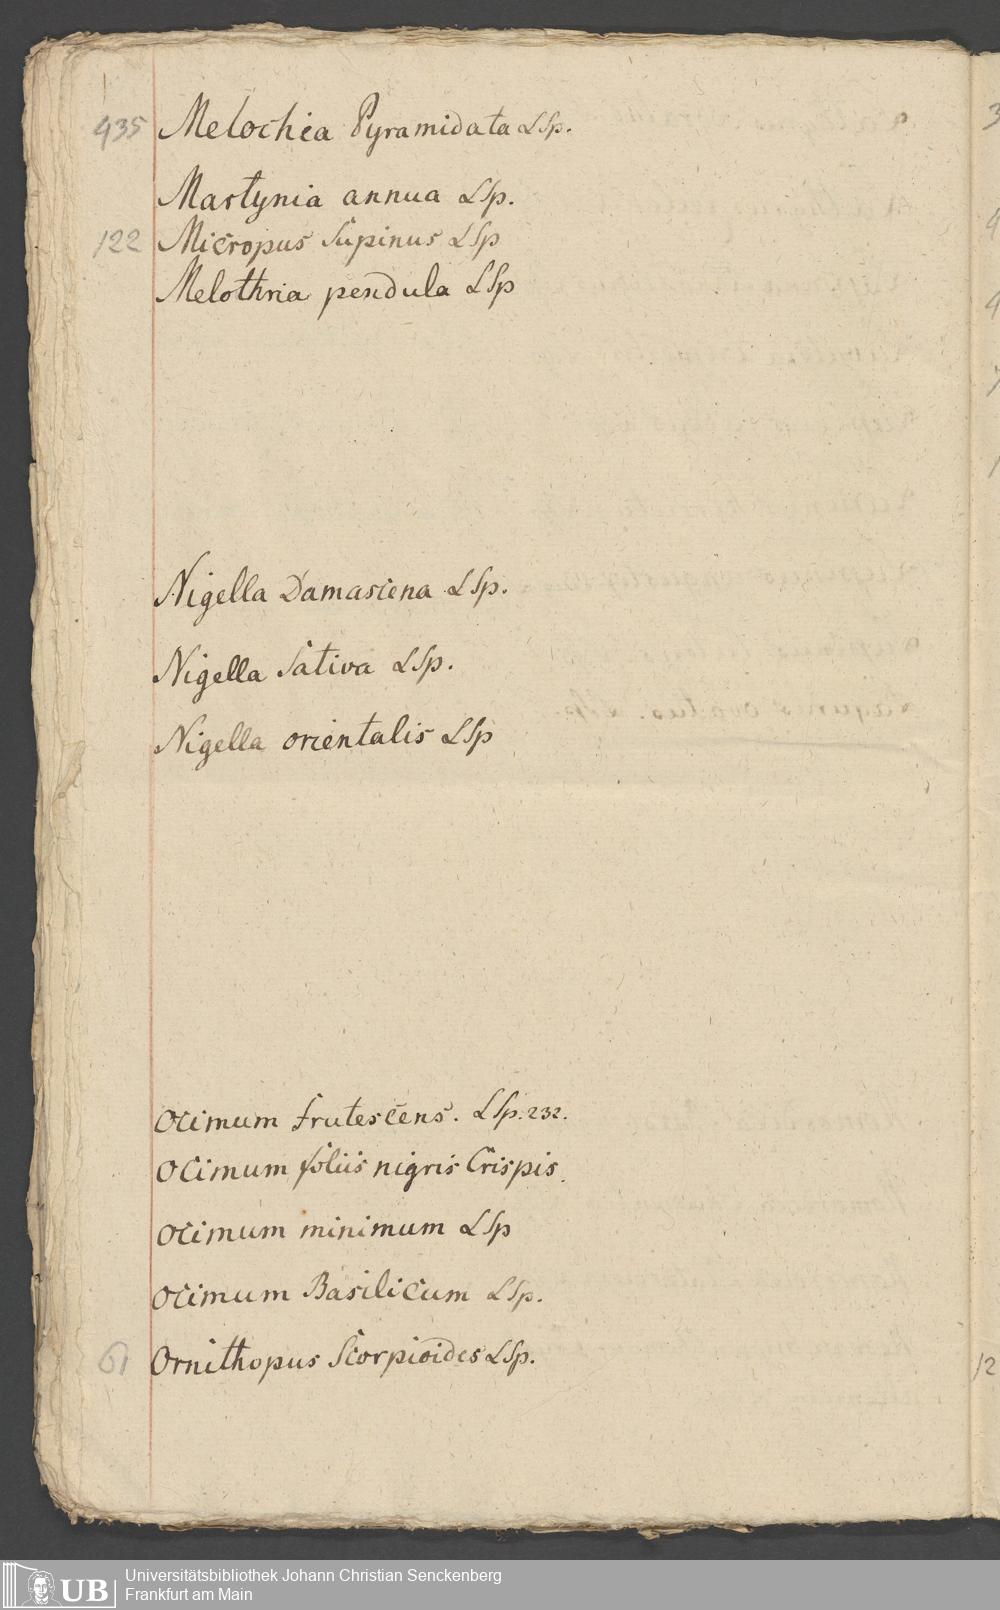 435 Melochia Pyramidata LSp.
Martynia annua LSp.
122 Micropus Supinus LSp
Melothria pendula LSp
Nigella Damascena LSp.
Nigella Sativa LSp.
Nigella orientalis LSp
Ocimum frutescens. LSp. 232.
Ocimum foliis nigris Crispis.
Ocimum minimum LSp
Ocimum Basilicum LSp.
61 Ornithopus Scorpioides LSp.
12
UB Universitätsbibliothek Johann Christian Senckenberg
Frankfurt am Main